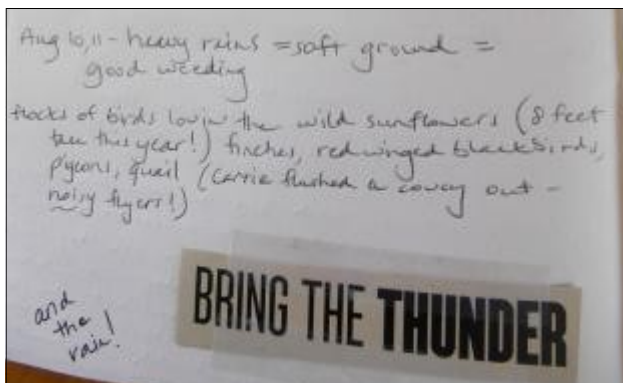 Aug 10, 11 - heavy rains = soft ground =
good weeding
flocks of birds lovin the wild sunflowers (8 feet
tall this year!) finches, red winged blackbirds,
pigeons, quail (Carrie flushed a covey out -
noisy flyers!)
and
the
rain!
BRING THE THUNDER